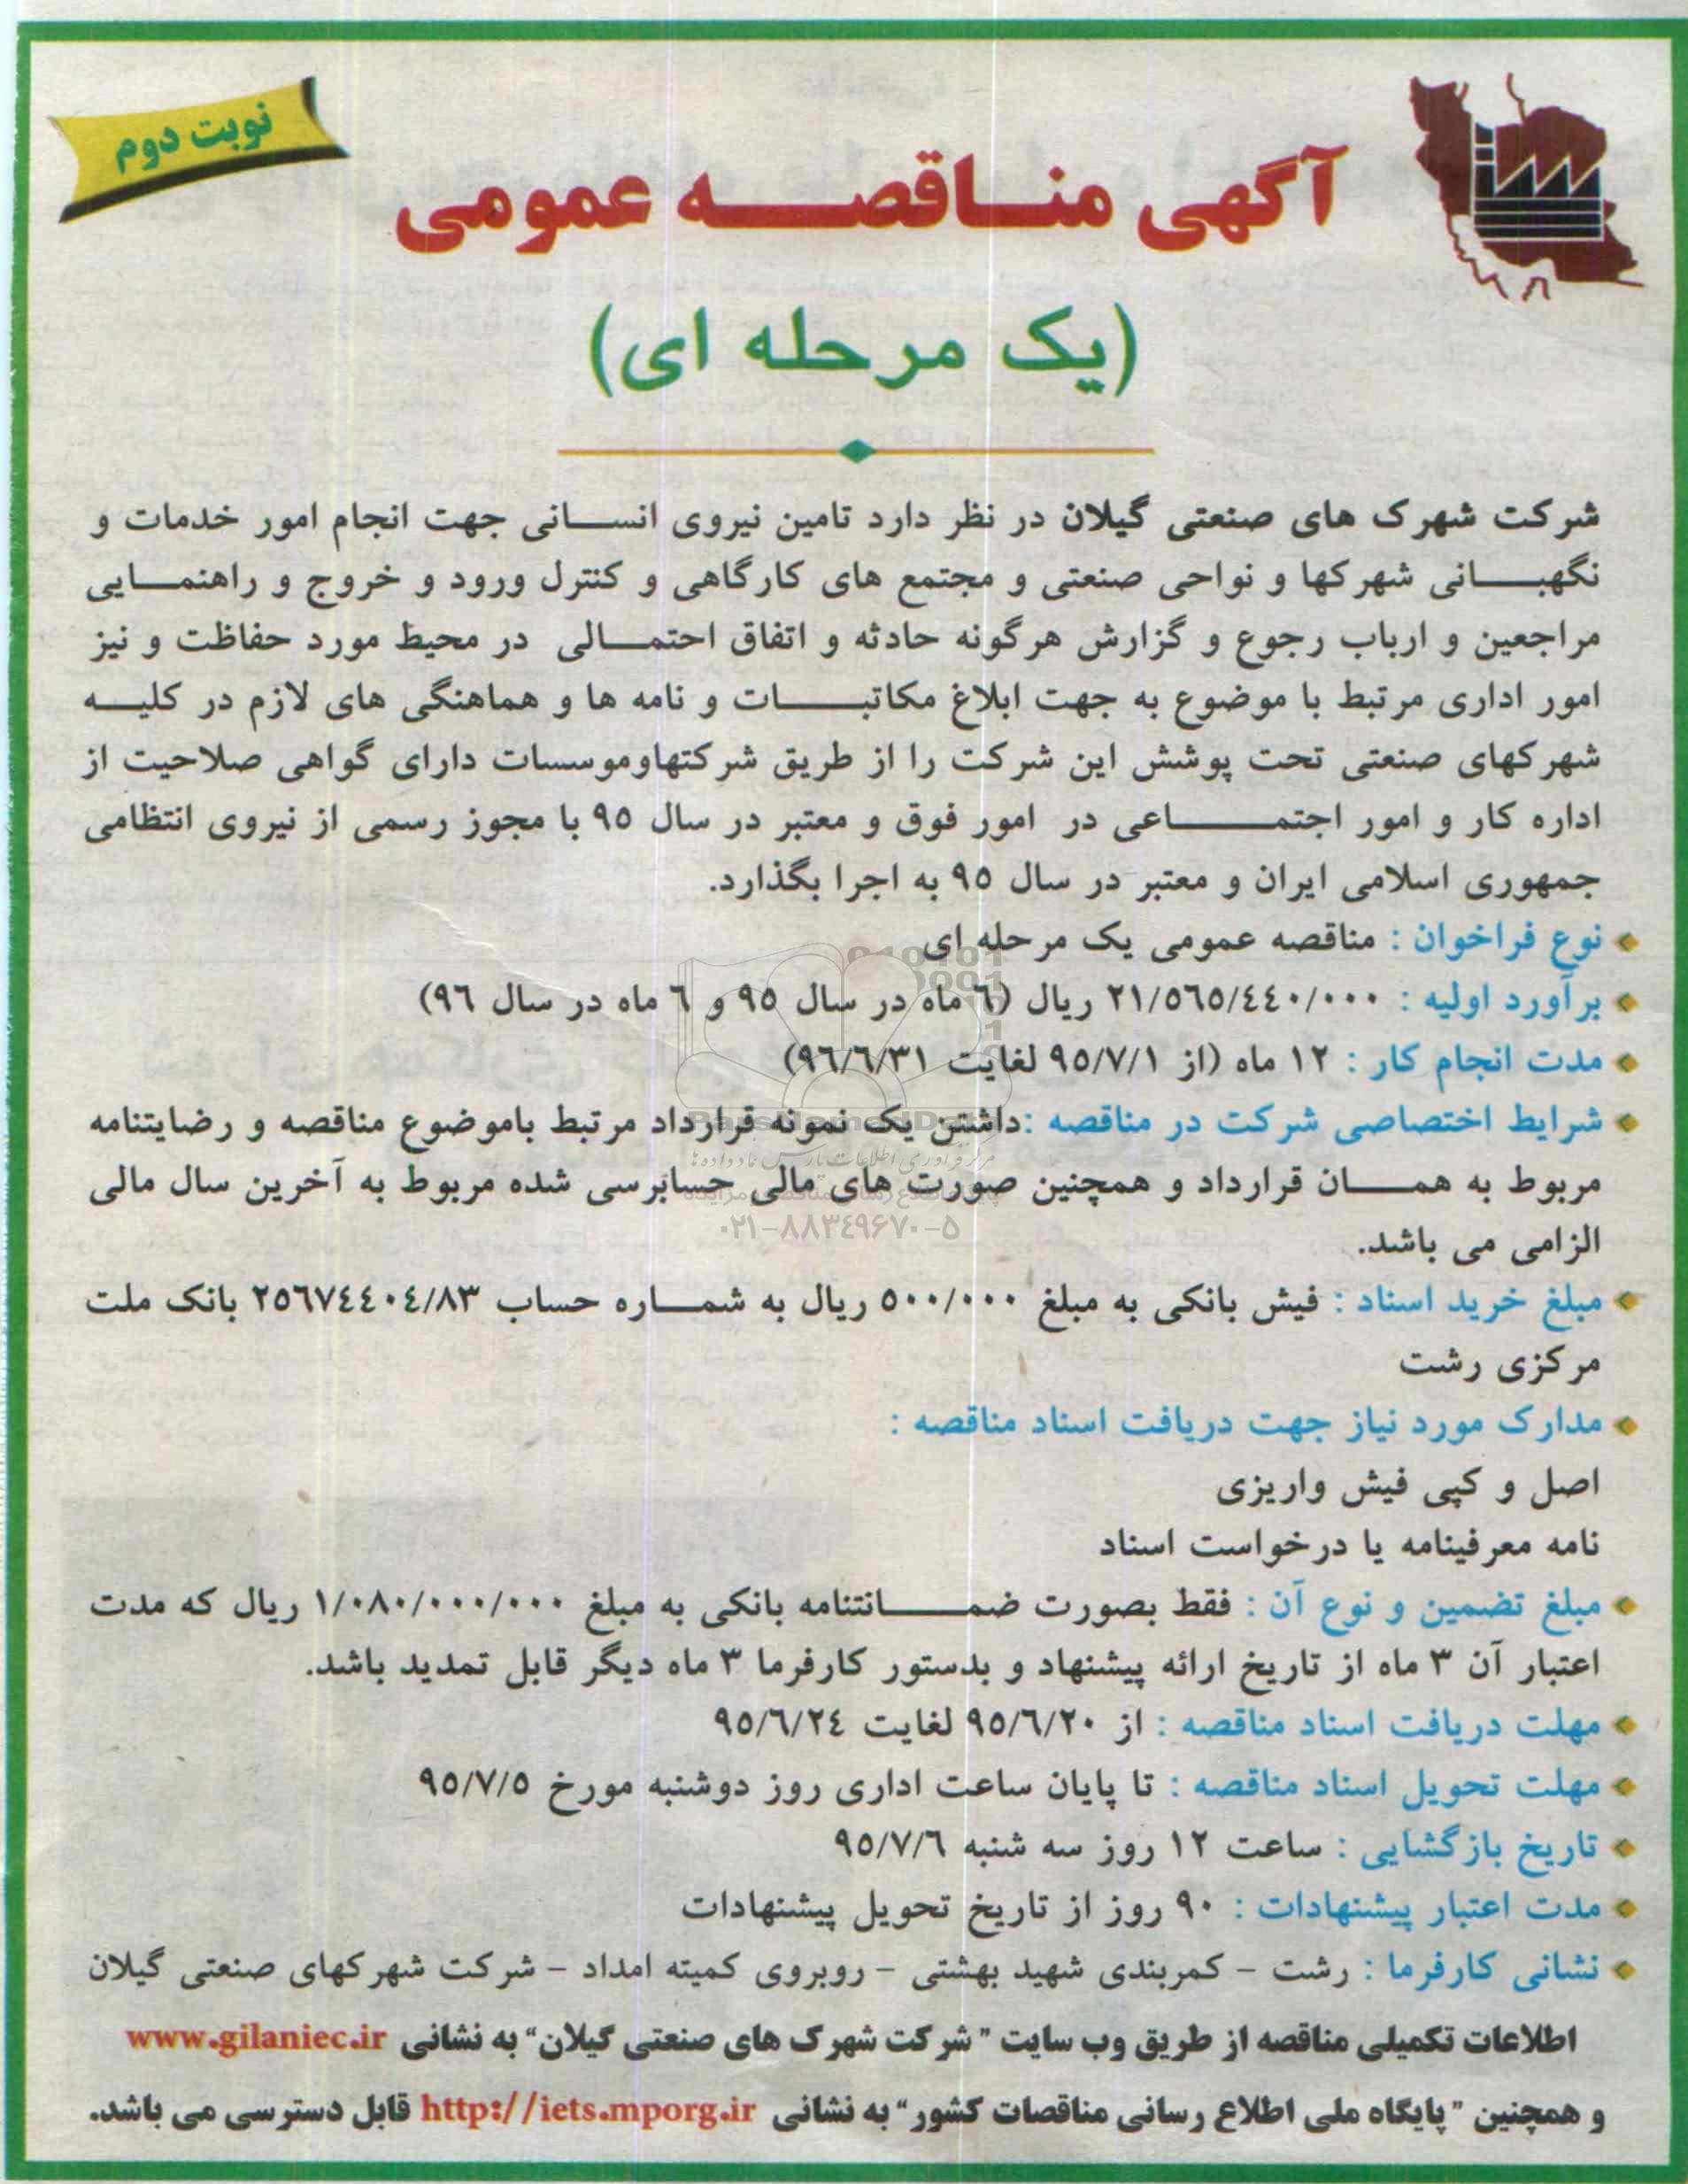 نوبت دوم
آگهی مناقصه عمومی
(یک مرحله ای)
شرکت شهرک های صنعتی گیلان در نظر دارد تامین نیروی انسانی جهت انجام امور خدمات و
نگهبانی شهرکها و نواحی صنعتی و مجتمع های کارگاهی و کنترل ورود و خروج و راهنمایی
مراجعین و ارباب رجوع و گزارش هرگونه حادثه و اتفاق احتمالی در محیط مورد حفاظت و نیز
امور اداری مرتبط با موضوع به جهت ابلاغ مکاتبات و نامه ها و هماهنگی های لازم در کلیه
شهرکهای صنعتی تحت پوشش این شرکت را از طریق شرکتهاوموسسات دارای گواهی صلاحیت از
اداره کار و امور اجتماعی در امور فوق و معتبر در سال ۹۵ با مجوز رسمی از نیروی انتظامی
جمهوری اسلامی ایران و معتبر در سال ۹۵ به اجرا بگذارد.
نوع فراخوان : مناقصه عمومی یک مرحله ای
برآورد اولیه : ۲۱/۵۶۵/۴۴۰/۰۰۰ ریال (۶ ماه در سال ۹۵ و ۶ ماه در سال ۹۶)
مدت انجام کار : ۱۲ ماه (از ۹۵/۷/۱ لغایت ۹۶/۶/۳۱)
شرایط اختصاصی شرکت در مناقصه :داشتن یک نمونه قرارداد مرتبط باموضوع مناقصه و رضایتنامه
مربوط به همان قرارداد و همچنین صورت های مالی حسابرسی شده مربوط به آخرین سال مالی
۰۲۱-۸۸۳۴۹۶۷۰-۵
الزامی می باشد.
مبلغ خرید اسناد : فیش بانکی به مبلغ ۵۰۰/۰۰۰ ریال به شماره حساب ۲۵۶۷۴۴۰۴/۸۳ بانک ملت
مرکزی رشت
مدارک مورد نیاز جهت دریافت اسناد مناقصه :
اصل و کپی فیش واریزی
نامه معرفینامه یا درخواست اسناد
مبلغ تضمین و نوع آن : فقط بصورت ضمانتنامه بانکی به مبلغ ۱/۰۸۰/۰۰۰/۰۰۰ ریال که مدت
اعتبار آن ۳ ماه از تاریخ ارائه پیشنهاد و بدستور کارفرما ۳ ماه دیگر قابل تمدید باشد.
مهلت دریافت اسناد مناقصه : از ۹۵/۶/۲۰ لغایت ۹۵/۶/۲۴
مهلت تحویل اسناد مناقصه : تا پایان ساعت اداری روز دوشنبه مورخ ۹۵/۷/۵
تاریخ بازگشایی : ساعت ۱۲ روز سه شنبه ۹۵/۷/۶
مدت اعتبار پیشنهادات : ۹۰ روز از تاریخ تحویل پیشنهادات
نشانی کارفرما : رشت - کمربندی شهید بهشتی - روبروی کمیته امداد - شرکت شهرکهای صنعتی گیلان
اطلاعات تکمیلی مناقصه از طریق وب سایت "شرکت شهرک های صنعتی گیلان" به نشانی www.gilaniec.ir
و همچنین "پایگاه ملی اطلاع رسانی مناقصات کشور" به نشانی http://iets.mporg.ir قابل دسترسی می باشد.